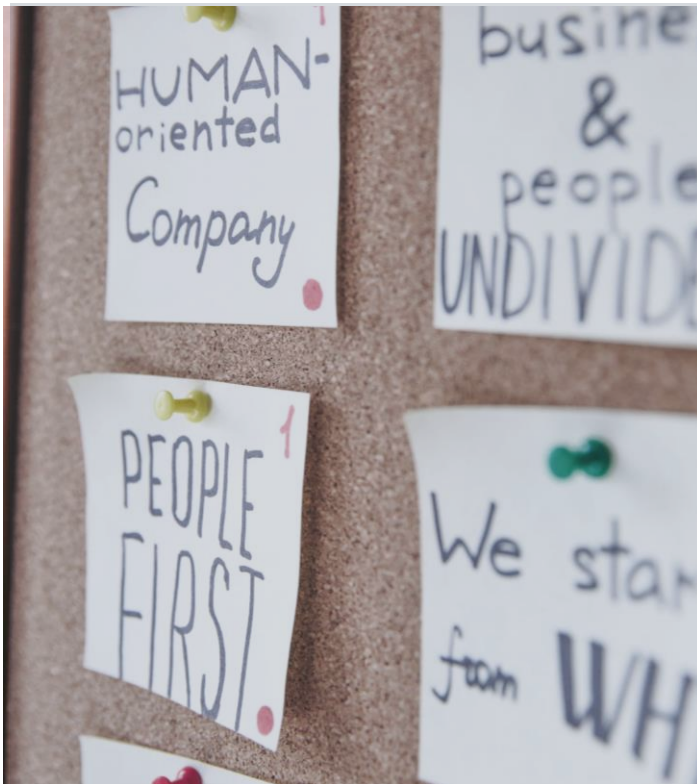 1
HUMAN-
oriented
Company
busine
&
people
UNDIVID
1
PEOPLE
FIRST
We star
from WH